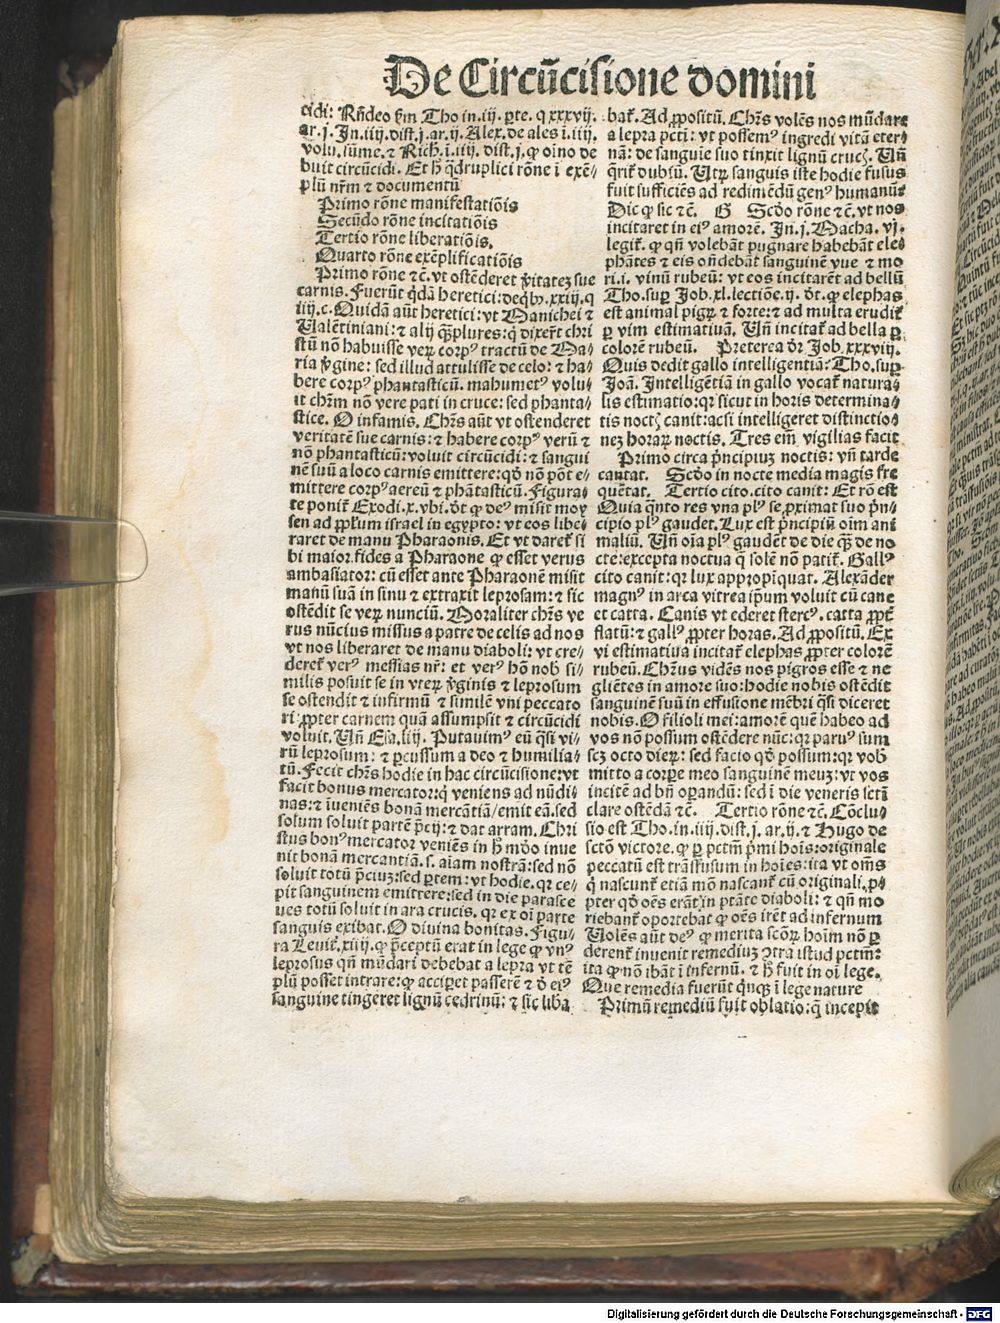 De Circũcisione domini
cidi: Rñdeo ẜm Tho in.iij. ꝑte. q xxxvij.
ar.j. Jn.iiij.dist.j.ar.ij. Alex.de ales i.iiij.
volu.sũme.⁊ Rich.i.iiij. dist.j.ꝙ oĩno de
buit circũcidi. Et h̃ q̃druplici rõne i exẽ⸗
plũ nr̃m ⁊ documentũ
Primo rõne manifestatiõis
Secũdo rõne incitatiõis
Tertio rõne liberatiõis.
Quarto rõne exẽplificatiõis
Primo rõne ⁊c̃. vt ostẽderet v̓itatez sue
carnis. Fuerũt q̃dã heretici: de q̃bꝰ.xxiij.q
iiij.c. Quidã aũt heretici: vt Manichei ⁊
Valẽtiniani: ⁊ alij q̃ꝫplures: q̃ dixer̃t chri
stũ nõ habuisse veꝝ corpꝰ tractũ de Ma⸗
ria v̓gine: sed illud attulisse de celo: ⁊ ha⸗
bere corpꝰ phantasticũ. mahumetꝰ volu⸗
it chr̃m nõ vere pati in cruce: sed phanta⸗
stice. O infamis. Chr̃s aũt vt ostenderet
veritatẽ sue carnis: ⁊ habere corpꝰ verũ ⁊
nõ phantasticũ: voluit circũcidi: ⁊ sangui
nẽ suũ a loco carnis emittere: qđ nõ põt e⸗
mittere corpꝰ aereũ ⁊ phãtasticũ. Figura⸗
te ponit̃ Exodi.x.vbi.d̃t ꝙ deꝰ misit moy
sen ad pp̃lum israel in egypto: vt eos libe⸗
raret de manu Pharaonis. Et vt daret̃ si
bi maior fides a Pharaone ꝙ esset verus
ambasiator: cũ esset ante Pharaonẽ misit
manũ suã in sinu ⁊ extraxit leprosam: ⁊ sic
ostẽdit se veꝝ nunciũ. Moraliter chr̃s ve
rus nũcius missus a patre de celis ad nos
vt nos liberaret de manu diaboli: vt cre⸗
deret̃ verꝰ messias nr̃: et verꝰ hõ nob̃ si⸗
milis posuit se in vteꝝ v̓ginis ⁊ leprosum
se ostendit ⁊ infirmũ ⁊ similẽ vni peccato
ri: ꝓpter carnem quã assumpsit ⁊ circũcidi
voluit. Vñ Esa.liij. Putauimꝰ eũ q̃si vi⸗
rũ leprosum: ⁊ ꝑcussum a deo ⁊ humilia⸗
tũ. Fecit chr̃s hodie in hac circũcisione: vt
facit bonus mercator: q̃ veniens ad nũdi⸗
nas: ⁊ iueniẽs bonã mercãtiã/ emit eã. sed
solum soluit partẽ p̃cij: ⁊ dat arram. Chri
stus bonꝰ mercator veniẽs in h̃ mõdo inue
nit bonã mercantiã. s. aĩam nostrã: sed nõ
soluit totũ p̃ciuz: sed ꝑtem: vt hodie. qꝛ ce⸗
pit sanguinem emittere: sed in die parasce
ues totũ soluit in ara crucis. qꝛ ex oĩ parte
sanguis exibat. O divina bonitas. Figu⸗
ra Leuit̃.xiiij.ꝙ p̃ceptũ erat in lege ꝙ vnꝰ
leprosus qñ mũdari debebat a lepra vt tẽ
plũ posset intrare: ꝙ acciꝑet passerẽ ⁊ đ eiꝰ
sanguine tingeret lignũ cedrinũ: ⁊ sic liba
bat̃. Ad ꝓpositũ. Chr̃s volẽs nos mũdare
a lepra pct̃i: vt possemꝰ ingredi vitã eter⸗
nã: de sanguĩe suo tinxit lignũ crucꝭ. Vñ
q̃rit̃ dubiũ. Vtꝝ sanguis iste hodie fusus
fuit sufficiẽs ad redimẽdũ genꝰ humanũ:
Dic ꝙ sic ⁊c̃. G Scđo rõne ⁊c̃. vt nos
incitaret in eiꝰ amorẽ. Jn.j. Macha. vj.
legit̃. ꝙ qñ volebãt pugnare habebãt ele⸗
phãtes ⁊ eis oñdebãt sanguinẽ vue ⁊ mo
ri.i. vinũ rubeũ: vt eos incitarẽt ad bellũ
Tho. suꝑ Job.xl.lectiõe.ij. đt. ꝙ elephas
est animal pigꝝ ⁊ forte: ⁊ ad multa erudit̃
ꝑ vim estimatiuã. Vñ incitat̃ ad bella ꝑ
colorẽ rubeũ. Preterea đr Job.xxxviij.
Quis dedit gallo intelligentiã: Tho. suꝑ
Joã. Jntelligẽtiã in gallo vocat̃ natura⸗
lis estimatio: qꝛ sicut in horis determina⸗
tis noctꝭ canit: acsi intelligeret distinctio⸗
nez horaꝝ noctis. Tres em̃ vigilias facit
Primo circa p̃ncipiuz noctis: vñ tarde
cantat. Scđo in nocte media magis fre
quẽtat. Tertio cito.cito canit: Et rõ est
Quia q̃nto res vna plꝰ se ꝓximat suo p̃n⸗
cipio plꝰ gaudet. Lux est p̃ncipiũ oĩm ani
maliũ. Vñ oĩa plꝰ gaudẽt de die q̃ꝫ de no
cte: excepta noctua q̃ solẽ nõ patit̃. Gallꝰ
cito canit: qꝛ lux appropĩquat. Alexãder
magnꝰ in arca vitrea ip̃um voluit cũ cane
et catta. Canis vt ederet stercꝰ. catta ꝓpt̃
flatũ: ⁊ gallꝰ ꝓpter horas. Ad ꝓpositũ. Ex
vi estimatiua incitat̃ elephas ꝓpter colorẽ
rubeũ. Chr̃us vidẽs nos pigros esse ⁊ ne
gliẽtes in amore suo: hodie nobis ostẽdit
sanguinẽ suũ in effusione mẽbri q̃si diceret
nobis. O filioli mei: amorẽ quẽ habeo ad
vos nõ possum ostẽdere nũc: qꝛ paruꝰ sum
scꝫ octo dieꝝ: sed facio qđ possum: qꝛ vob̃
mitto a corꝑe meo sanguinẽ meuz: vt vos
incitẽ ad bñ oꝑandũ: sed i die veneris sct̃i
clare ostẽdã ⁊c̃. Tertio rõne ⁊c̃. Cõclu⸗
sio est Tho.in.iiij.dist.j.ar.ij.⁊ Hugo de
sctõ victore.ꝙ ꝑ pctm̃ p̃mi hoĩs: originale
peccatũ est trãsfusum in hoĩes: ita vt oẽs
q̃ nascunt̃ etiã mõ nascant̃ cũ originali. ꝓ⸗
pter qđ oẽs erãt in ptãte diaboli: ⁊ qñ mo
riebant̃ oportebat ꝙ oẽs irẽt ad infernum
Volẽs aũt deꝰ ꝙ merita scõꝝ hoĩm nõ ꝑ
derent̃ inuenit remediuz ꝯtra istud pctm̃:
ita ꝙ nõ ibãt i infernũ. ⁊ h̃ fuit in oĩ lege.
Que remedia fuerũt q̃nqꝫ i lege nature
Primũ remediũ fuit oblatio: q̃ incepit
Digitalisierung gefördert durch die Deutsche Forschungsgemeinschaft - DFG